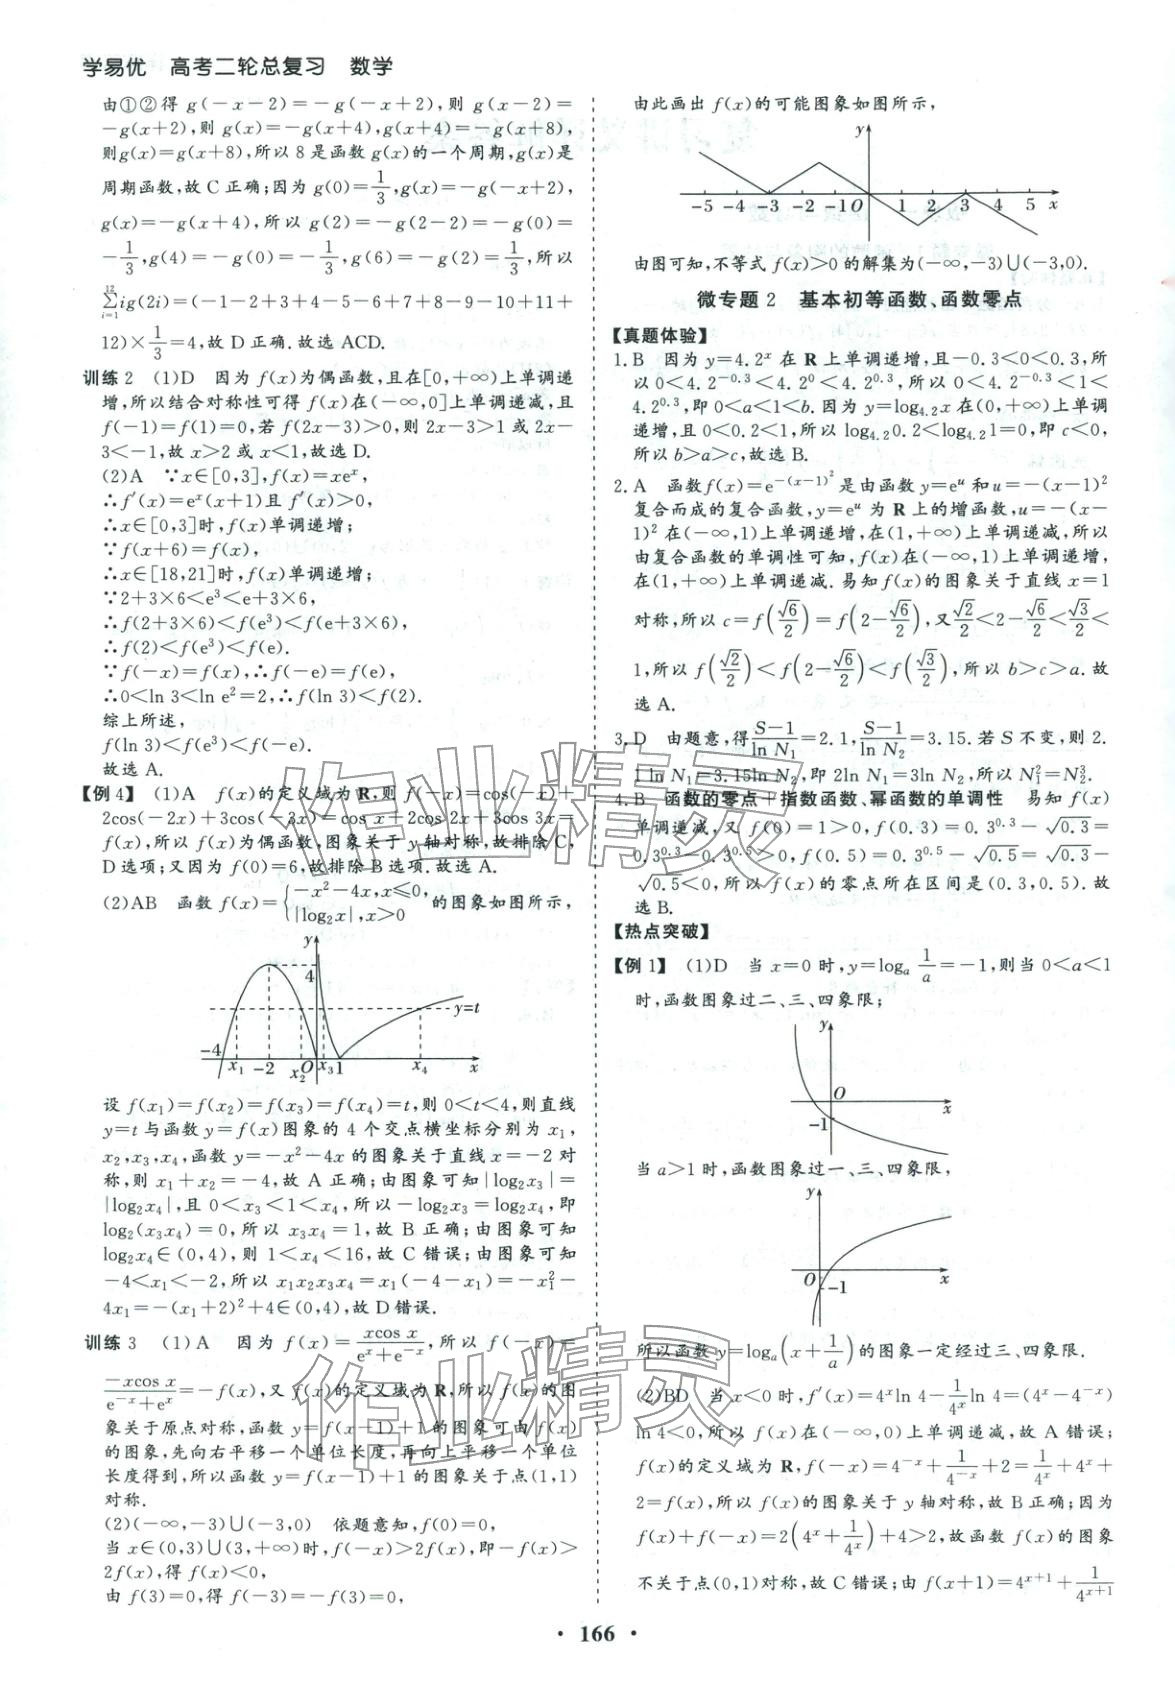 学易优 高考二轮总复习 数学
由①②得 g(-x-2)=-g(-x+2),则 g(x-2)=
-g(x+2),则 g(x)=-g(x+4),g(x+4)=-g(x+8),
则g(x)=g(x+8),所以 8 是函数 g(x)的一个周期,g(x)是
周期函数,故 C 正确;因为 g(0)=1/3,g(x)=-g(-x+2),
g(x)=-g(x+4),所以 g(2)=-g(2-2)=-g(0)=
-1/3,g(4)=-g(0)=-1/3,g(6)=-g(2)=1/3,所以
∑(i=1→12)ig(2i)=(-1-2+3+4-5-6+7+8-9-10+11+
12)×1/3=4,故 D 正确.故选 ACD.
训练 2 (1)D 因为 f(x)为偶函数,且在[0,+∞)上单调递
增,所以结合对称性可得 f(x)在(-∞,0]上单调递减,且
f(-1)=f(1)=0,若 f(2x-3)>0,则 2x-3>1 或 2x-
3<-1,故 x>2 或 x<1,故选 D.
(2)A ∵x∈[0,3],f(x)=xeˣ,
∴f′(x)=eˣ(x+1)且 f′(x)>0,
∴x∈[0,3]时,f(x)单调递增;
∵f(x+6)=f(x),
∴x∈[18,21]时,f(x)单调递增;
∵2+3×6<e³<e+3×6,
∴f(2+3×6)<f(e³)<f(e+3×6),
∴f(2)<f(e³)<f(e).
∵f(-x)=f(x),∴f(-e)=f(e),
∴0<ln 3<ln e²=2,∴f(ln 3)<f(2).
综上所述,
f(ln 3)<f(e³)<f(-e).
故选 A.
【例 4】 (1)A f(x)的定义域为 R,则 f(-x)=cos(-x)+
2cos(-2x)+3cos(-3x)=cos x+2cos 2x+3cos 3x=
f(x),所以 f(x)为偶函数,图象关于 y 轴对称,排除 C,
D 选项;又因为 f(0)=6,故排除 B 选项.故选 A.
(2)AB 函数 f(x)={-x²-4x,x≤0, |log₂x|,x>0 的图象如图所示,
y
4
y=t
-4 x₁ -2 x₂ O x₃ 1 x₄ x
设 f(x₁)=f(x₂)=f(x₃)=f(x₄)=t,则 0<t<4,则直线
y=t 与函数 y=f(x)图象的 4 个交点横坐标分别为 x₁,
x₂,x₃,x₄,函数 y=-x²-4x 的图象关于直线 x=-2 对
称,则 x₁+x₂=-4,故 A 正确;由图象可知|log₂x₃|=
|log₂x₄|,且 0<x₃<1<x₄,所以-log₂x₃=log₂x₄,即
log₂(x₃x₄)=0,所以 x₃x₄=1,故 B 正确;由图象可知
log₂x₄∈(0,4),则 1<x₄<16,故 C 错误;由图象可知
-4<x₁<-2,所以 x₁x₂x₃x₄=x₁(-4-x₁)=-x₁²-
4x₁=-(x₁+2)²+4∈(0,4),故 D 错误.
训练 3 (1)A 因为 f(x)=xcos x/(eˣ+e⁻ˣ),所以 f(-x)=
-xcos x/(e⁻ˣ+eˣ)=-f(x),又 f(x)的定义域为 R,所以 f(x)的图
象关于原点对称,函数 y=f(x-1)+1 的图象可由 f(x)
的图象,先向右平移一个单位长度,再向上平移一个单位
长度得到,所以函数 y=f(x-1)+1 的图象关于点(1,1)
对称.
(2)(-∞,-3)∪(-3,0) 依题意知,f(0)=0,
当 x∈(0,3)∪(3,+∞)时,f(-x)>2f(x),即-f(x)>
2f(x),得 f(x)<0,
由 f(3)=0,得 f(-3)=-f(3)=0,
由此画出 f(x)的可能图象如图所示,
y
-5 -4 -3 -2 -1 O 1 2 3 4 5 x
由图可知,不等式 f(x)>0 的解集为(-∞,-3)∪(-3,0).
微专题 2 基本初等函数、函数零点
【真题体验】
1.B 因为 y=4.2ˣ 在 R 上单调递增,且-0.3<0<0.3,所
以 0<4.2^(-0.3)<4.2⁰<4.2^0.3,所以 0<4.2^(-0.3)<1<
4.2^0.3,即 0<a<1<b.因为 y=log₄.₂x 在(0,+∞)上单调
递增,且 0<0.2<1,所以 log₄.₂0.2<log₄.₂1=0,即 c<0,
所以 b>a>c,故选 B.
2.A 函数 f(x)=e^(-(x-1)²)是由函数 y=eᵘ 和 u=-(x-1)²
复合而成的复合函数,y=eᵘ 为 R 上的增函数,u=-(x-
1)² 在(-∞,1)上单调递增,在(1,+∞)上单调递减,所以
由复合函数的单调性可知,f(x)在(-∞,1)上单调递增,
在(1,+∞)上单调递减.易知 f(x)的图象关于直线 x=1
对称,所以 c=f(√6/2)=f(2-√6/2),又√2/2<2-√6/2<√3/2<
1,所以 f(√2/2)<f(2-√6/2)<f(√3/2),所以 b>c>a.故
选 A.
3.D 由题意,得(S-1)/ln N₁=2.1,(S-1)/ln N₂=3.15.若 S 不变,则 2.
1ln N₁=3.15ln N₂,即 2ln N₁=3ln N₂,所以 N₁²=N₂³.
4.B 函数的零点+指数函数、幂函数的单调性 易知 f(x)
单调递减,又 f(0)=1>0,f(0.3)=0.3^0.3-√0.3=
0.3^0.3-0.3^0.5>0,f(0.5)=0.3^0.5-√0.5=√0.3-
√0.5<0,所以 f(x)的零点所在区间是(0.3,0.5).故
选 B.
【热点突破】
【例 1】 (1)D 当 x=0 时,y=logₐ 1/a=-1,则当 0<a<1
时,函数图象过二、三、四象限;
y
O
x
-1
当 a>1 时,函数图象过一、三、四象限,
y
O
-1
x
所以函数 y=logₐ(x+1/a)的图象一定经过三、四象限.
(2)BD 当 x<0 时,f′(x)=4ˣln 4-1/4ˣ ln4=(4ˣ-4⁻ˣ)
ln 4<0,所以 f(x)在(-∞,0)上单调递减,故 A 错误;
f(x)的定义域为 R,f(-x)=4⁻ˣ+1/4⁻ˣ+2=1/4ˣ+4ˣ+
2=f(x),所以 f(x)的图象关于 y 轴对称,故 B 正确;因为
f(x)+f(-x)=2(4ˣ+1/4ˣ)+4>2,故函数 f(x)的图象
不关于点(0,1)对称,故 C 错误;由 f(x+1)=4ˣ⁺¹+1/4ˣ⁺¹
• 166 •
作业精灵
作业精灵